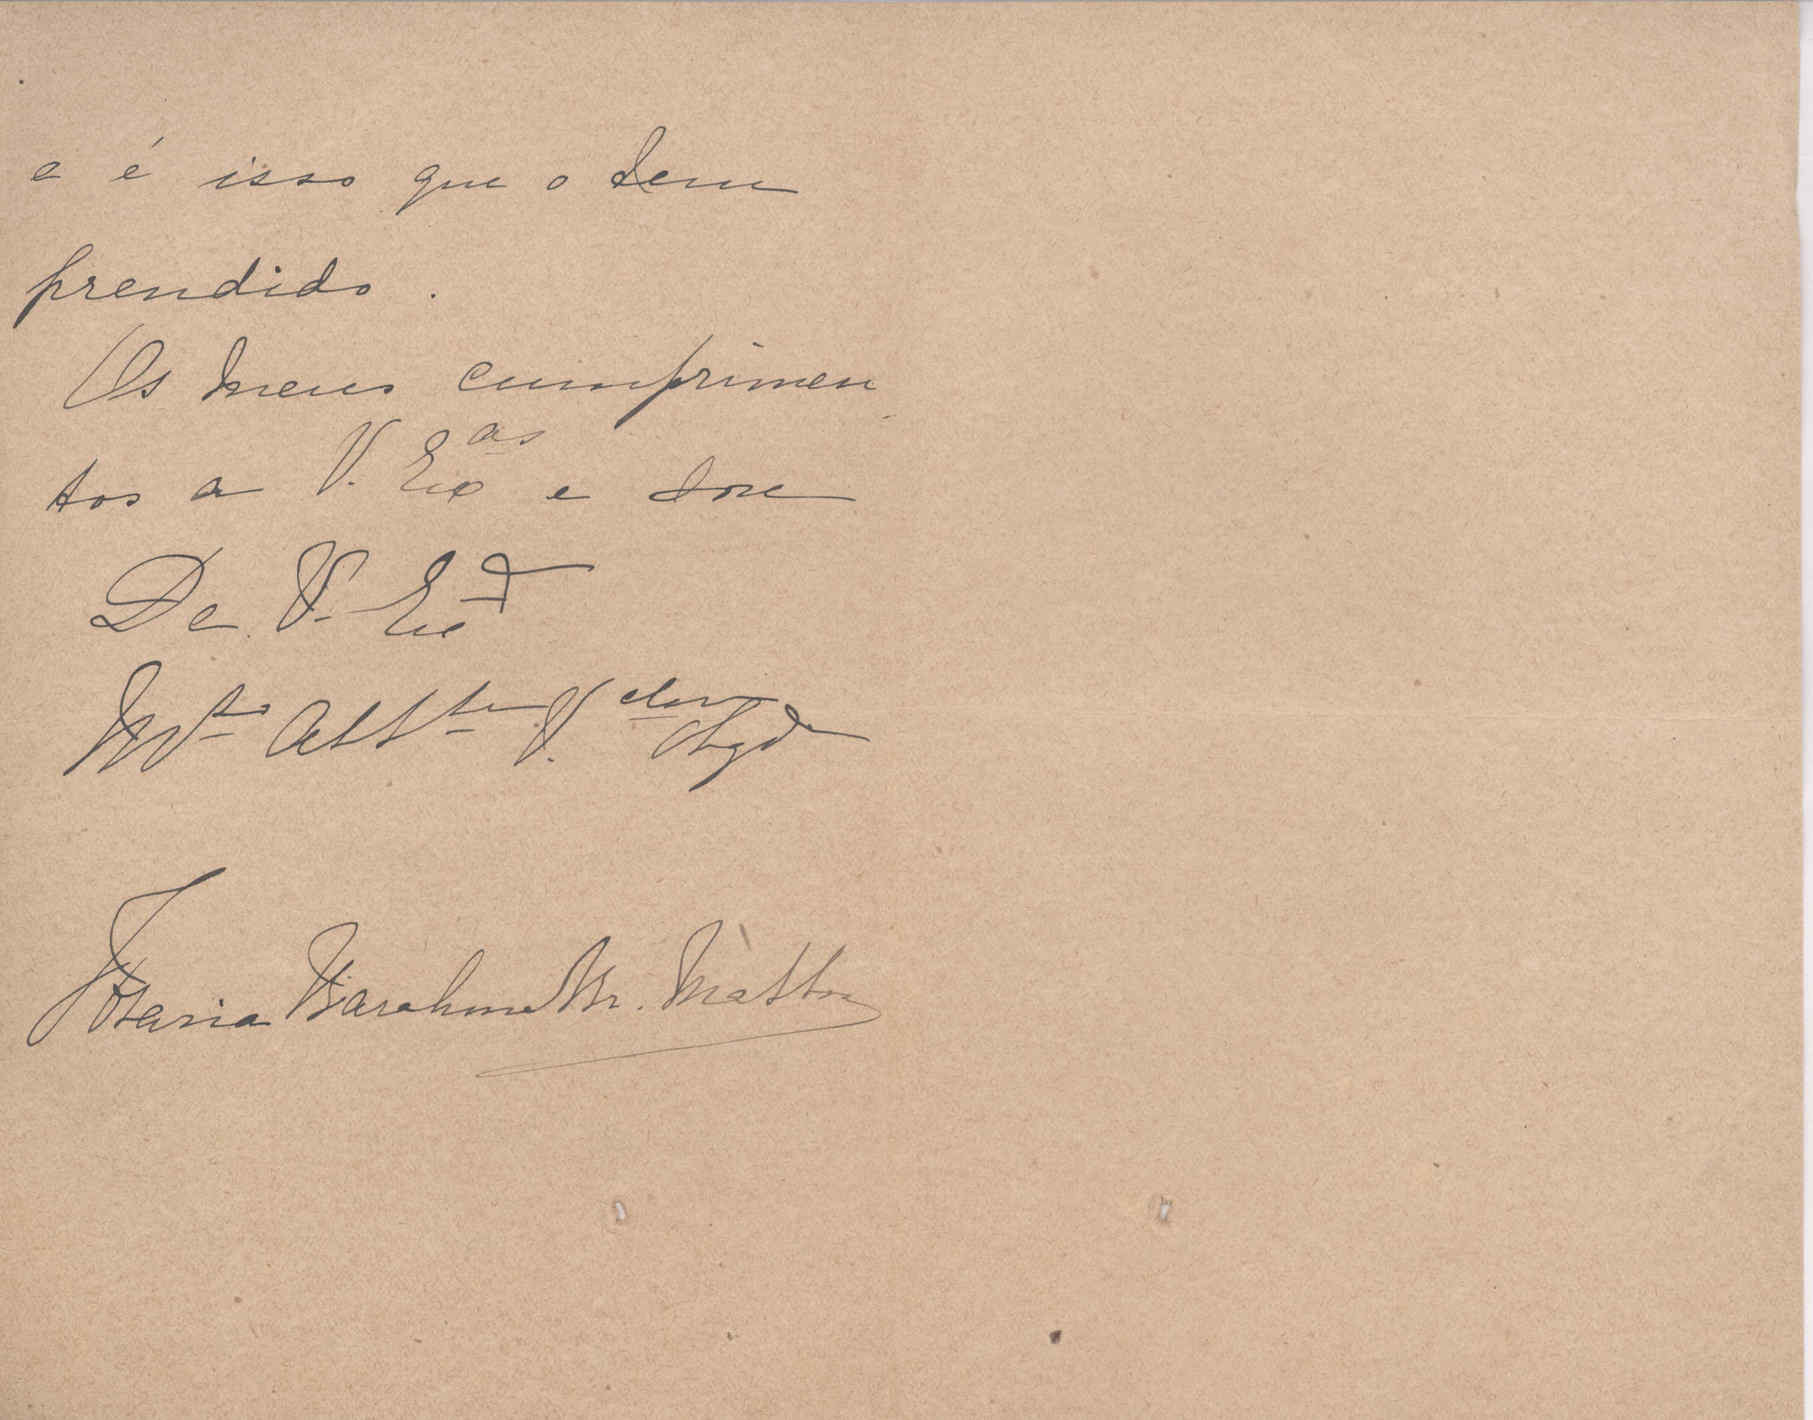 e é isso que o tem
prendido.
Os meus cumprimen
tos a V. Exas e sou
De V. Exa
Mto Attto V.dor Obgdo
Maria M. Mattos